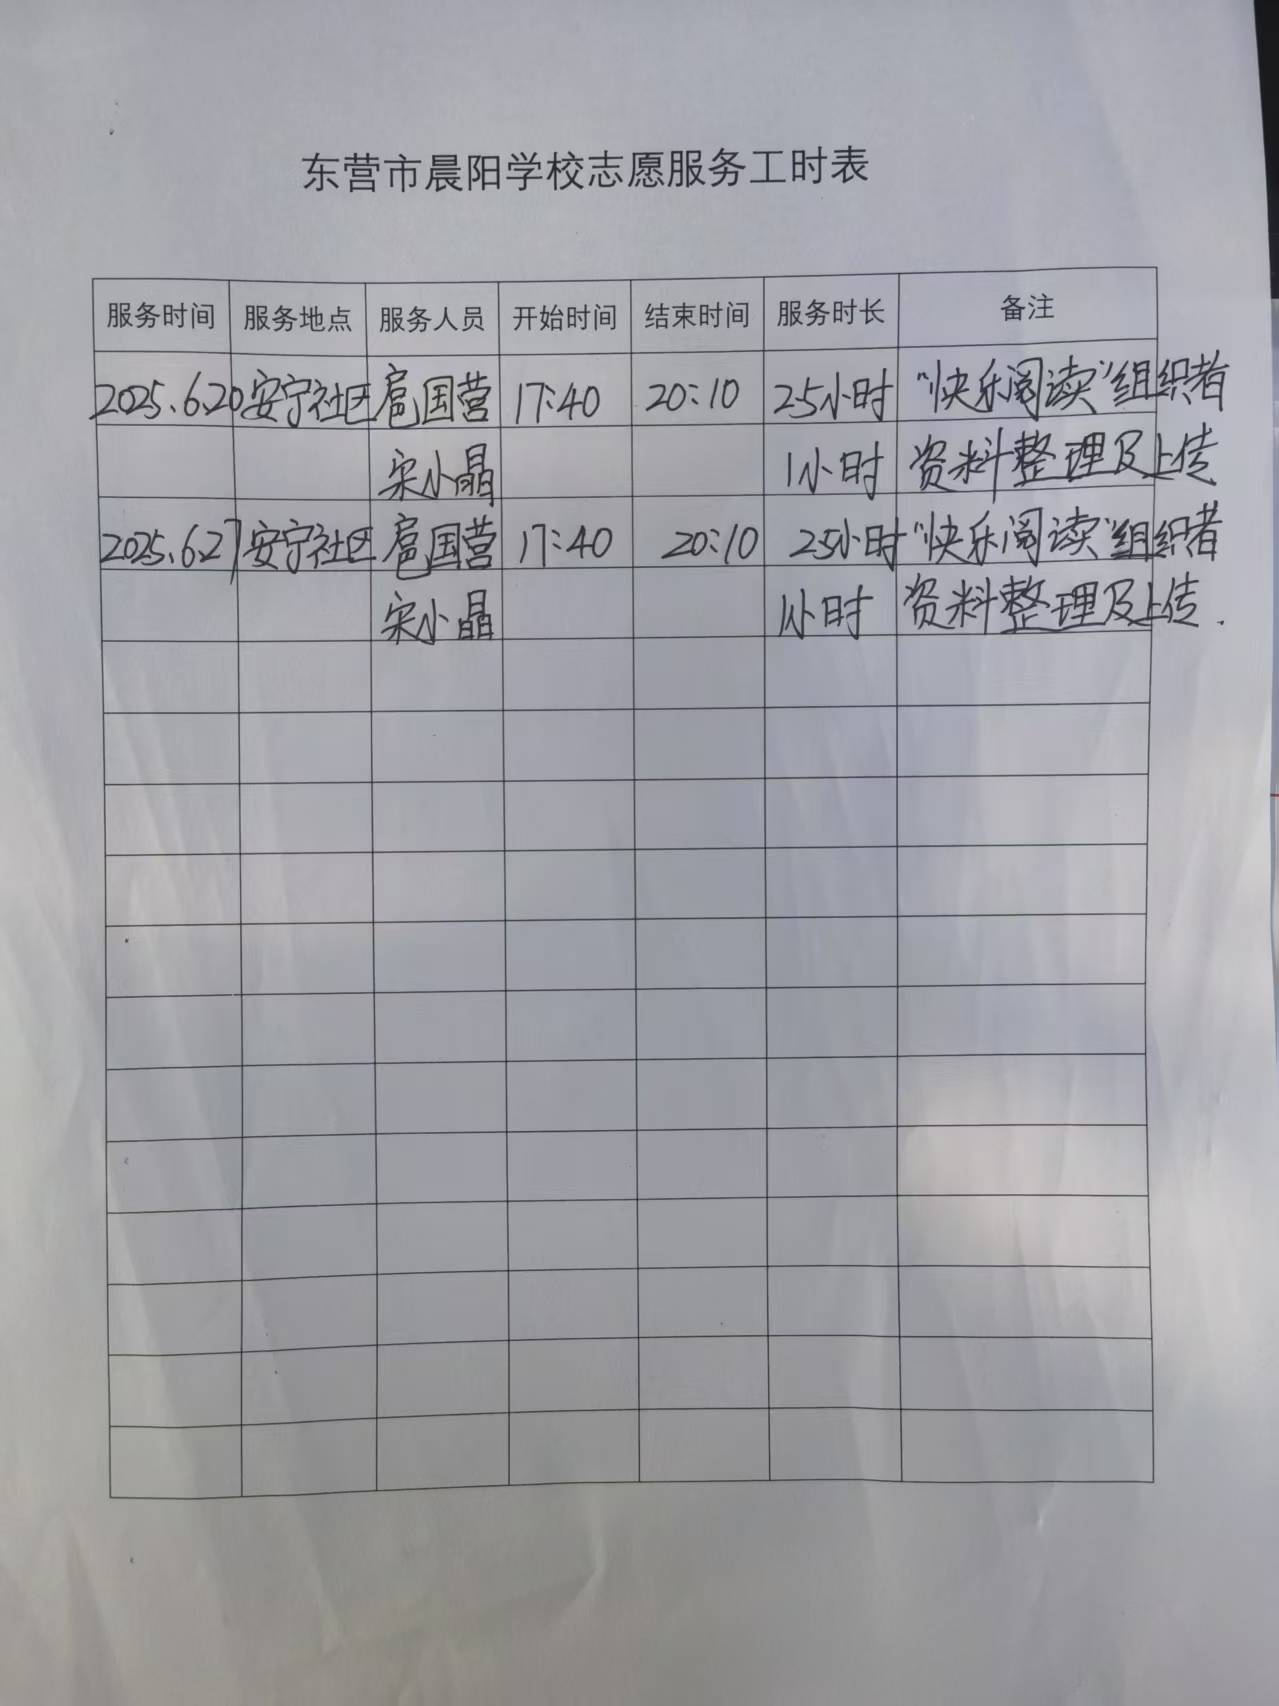 东营市晨阳学校志愿服务工时表
服务时间 服务地点 服务人员 开始时间 结束时间 服务时长 备注
2025.6.20 安宁社区 扈国营 17:40 20:10 2.5小时 "快乐阅读"组织者
宋小晶 1小时 资料整理及上传
2025.6.27 安宁社区 扈国营 17:40 20:10 2.5小时 "快乐阅读"组织者
宋小晶 1小时 资料整理及上传.